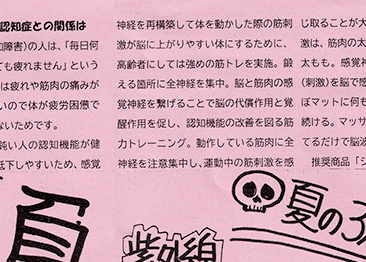 認知症との関係は
知障害)の人は、「毎日何
ても疲れません」という
は疲れや筋肉の痛みが
いので体が疲労困憊で
ないためです。
鈍い人の認知機能が健
低下しやすいため、感覚
神経を再構築して体を動かした際の筋刺
激が脳に上がりやすい体にするために、
高齢者にしては強めの筋トレを実施。鍛
える箇所に全神経を集中。脳と筋肉の感
覚神経を繋げることで脳の代償作用と覚
醒作用を促し、認知機能の改善を図る筋
力トレーニング。動作している筋肉に全
神経を注意集中し、運動中の筋刺激を感
じ取ることが大
激は、筋肉の太
太もも。感覚神
(刺激)を脳で感
ぼマットに何も
続ける。マッサ
てるだけで脳波
推奨商品「シ
夏の
紫外線